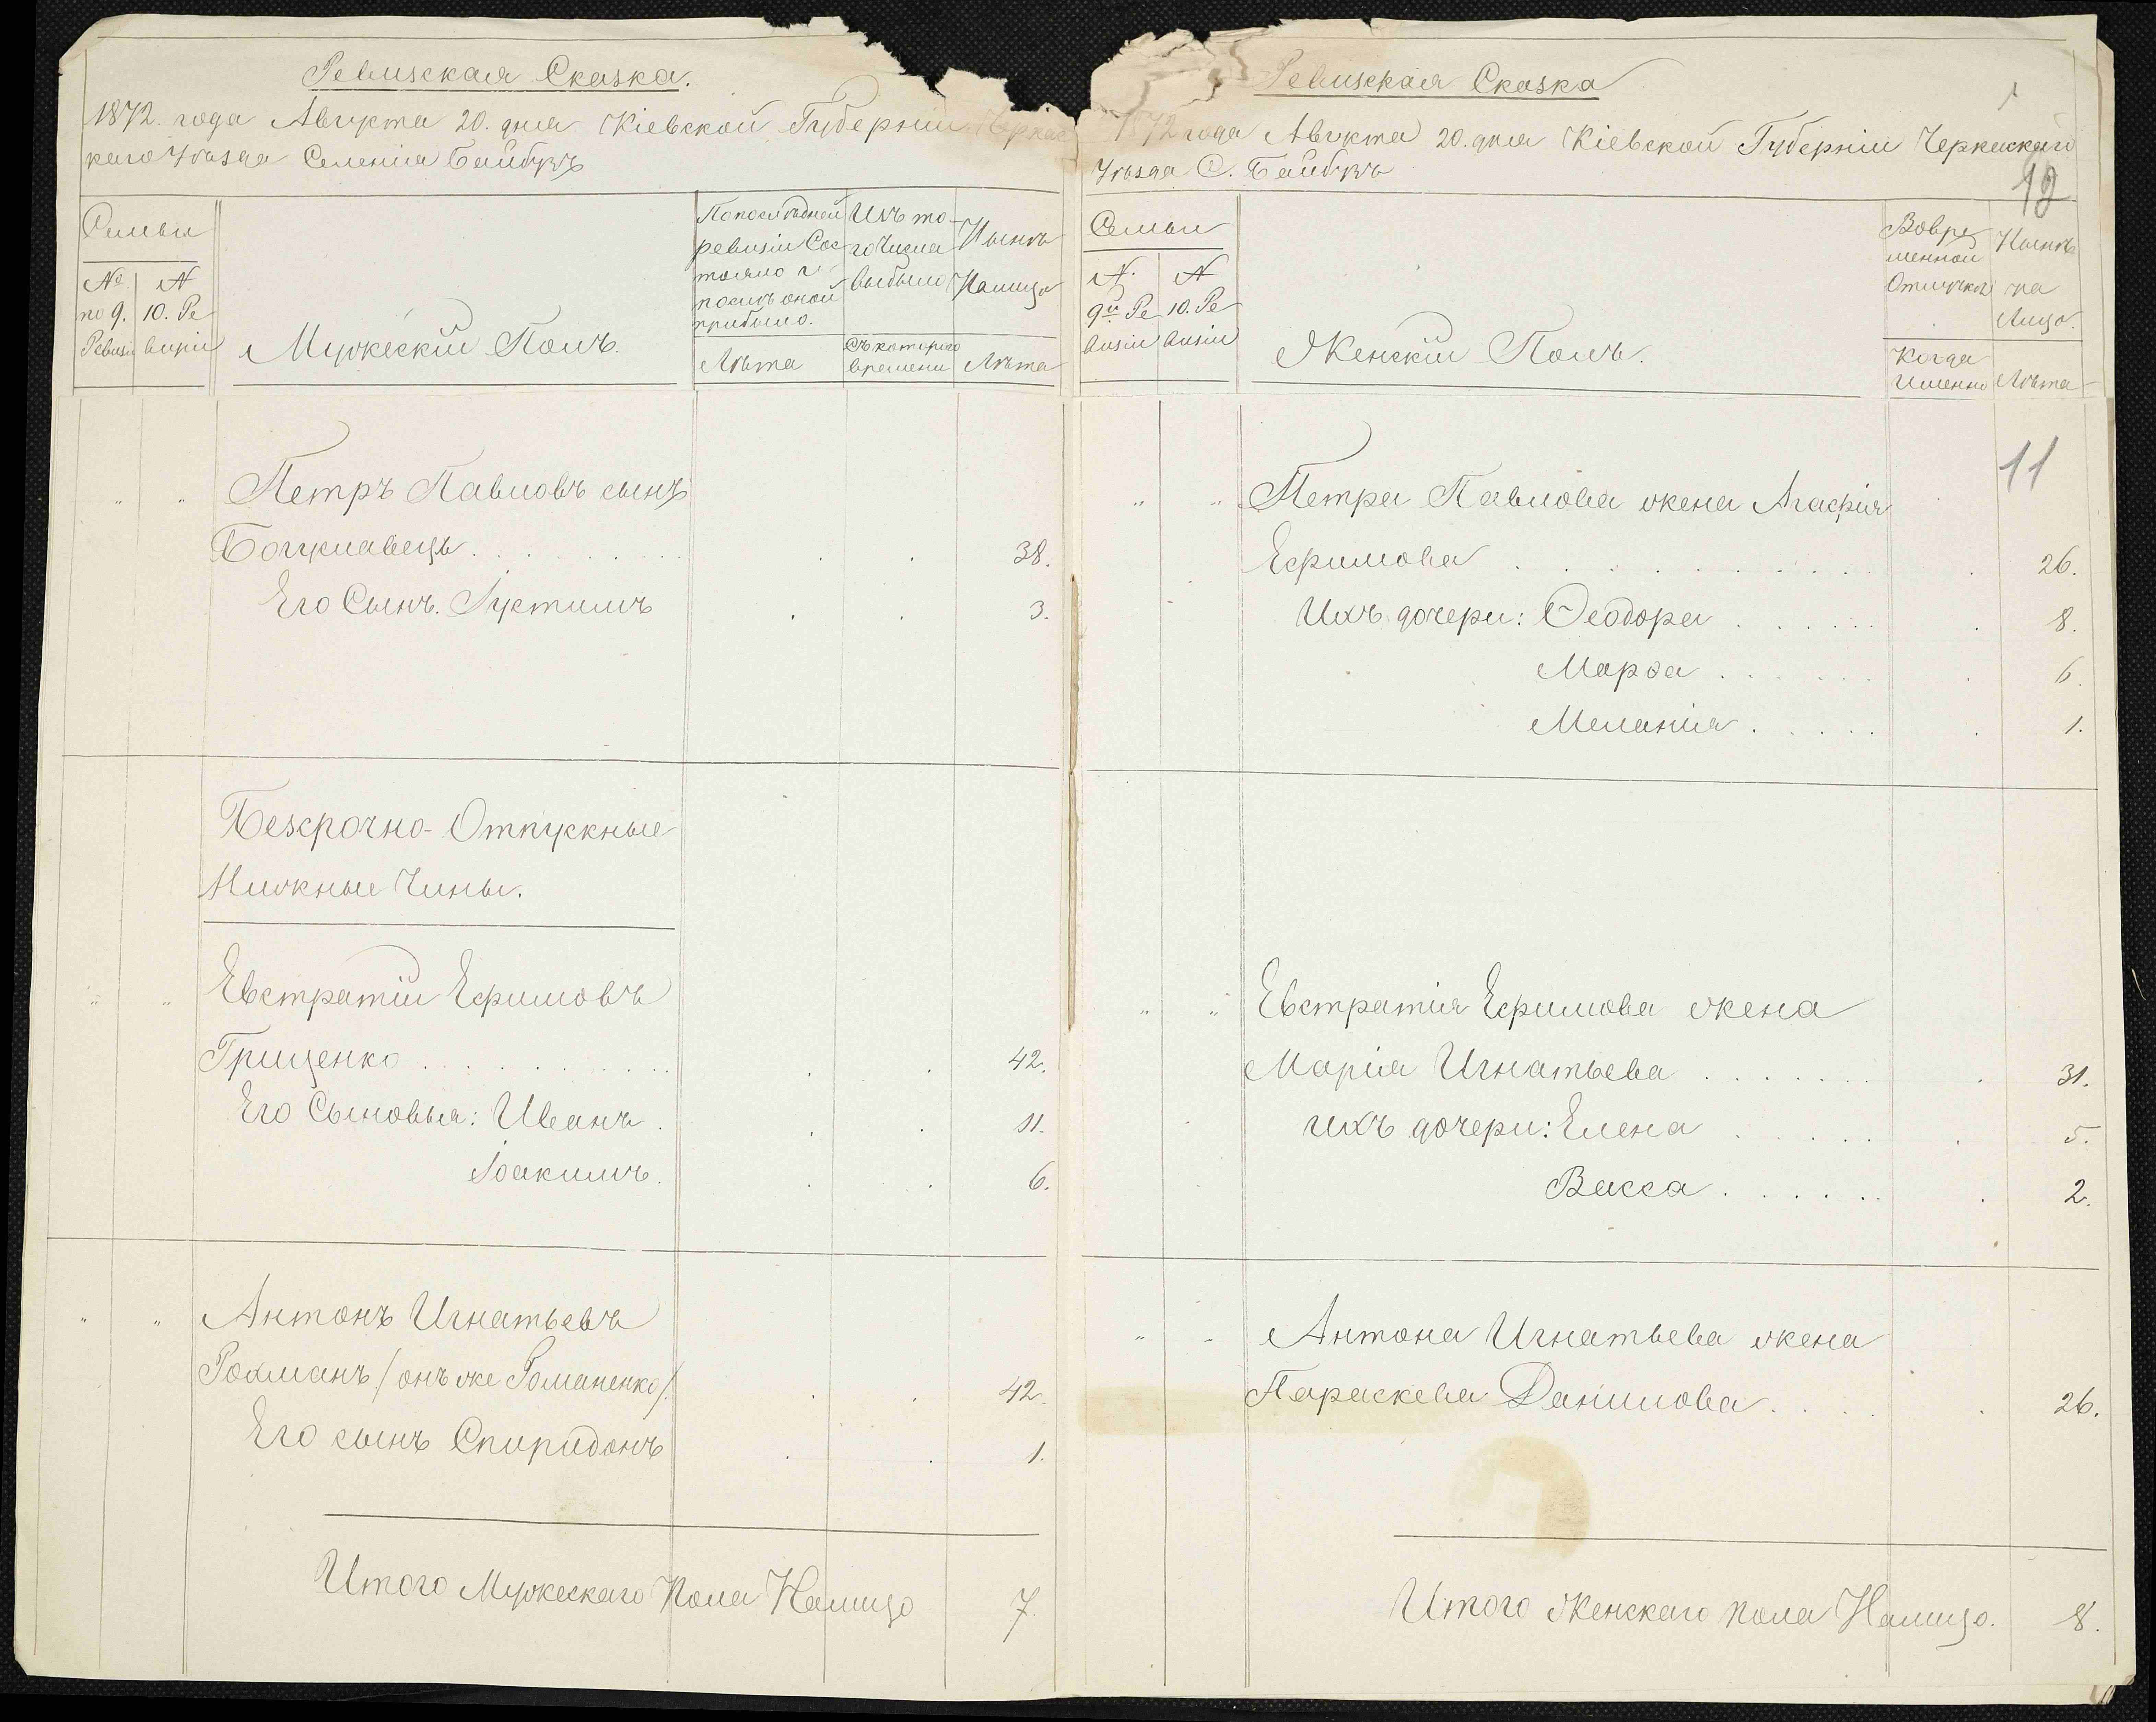 Ревизская Сказка.
1872. года Августа 20. дня Кіевской Губерніи Черкас
каго Уѣзда Селенія Байбузъ
Семьи
№ по 9. Ревизіи
№ 10. Ревизіи
Мужескій Полъ.
По послѣдней
ревизіи Сос
тояло и
послѣ оной
прибыло.
Лѣта
Изъ то-
го числа
выбыло
Съ котораго
времени
Нынѣ
Налицо
Лѣта
" " Петръ Павловъ сынъ
Богуславецъ . . . 38.
Его Сынъ. Іустинъ . . 3.
Безсрочно-Отпускные
Нижные Чины.
" " Евстратій Ефимовъ
Гриценко . . . 42.
Его Сыновья: Иванъ . . . 11.
Іоакимъ. . . 6.
" " Антонъ Игнатьевъ
Рохманъ /онъ же Романенко/. . . 42.
Его сынъ Спиридонъ . . 1.
Итого Мужескаго Пола Налицо 7.
Ревизская Сказка
1872 года Августа 20. дня Кіевской Губерніи Черкаскаго
Уѣзда С. Байбузъ
12
Семьи
№ 9й Ревизіи
№ 10. Ревизіи
Женскій Полъ.
Вовре
менной
Отлучкѣ
Когда
Именно
Нынѣ
на
Лицо.
Лѣта
11
" " Петра Павлова жена Агафія
Ефимова . . . 26.
Ихъ дочери: Ѳеодора . . . 8.
Марѳа . . . 6.
Меланія . . . 1.
" " Евстратія Ефимова жена
Марія Игнатьева . . . 31.
ихъ дочери: Елена . . . 5.
Васса . . . 2.
" " Антона Игнатьева жена
Параскева Данилова . . . 26.
Итого Женскаго пола Налицо. 8.